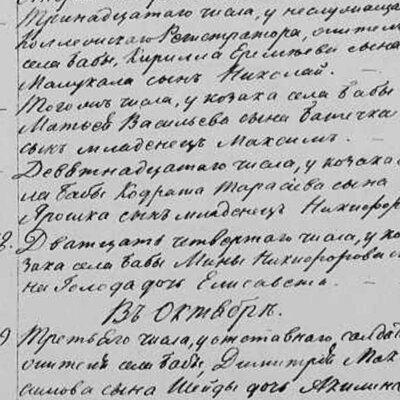 Тринадцатого числа, у неслужаща
Коллежскаго Регистратора, жител
села Бабы, Кирилла Еремѣева сына
Малукала сынъ Николай.
Того жъ числа, у козака села Бабы
Матѳей Васильева сына
сынъ младенецъ Максимъ.
Девятнадцатаго числа, у козака
ла Бабы Кодрата Тарасѣва сына
Ярошка сынъ младенецъ Никифоръ
8. Двадцать четвертаго числа, у ко
зака села Бабы Мины Никифорова
на Голода дочь Елисавета.
Въ Октябрѣ.
9 Третьяго числа, у отставнаго, солда
жителя села Бабы, Димитрія Мак
симова сына Шейды дочь Акилин